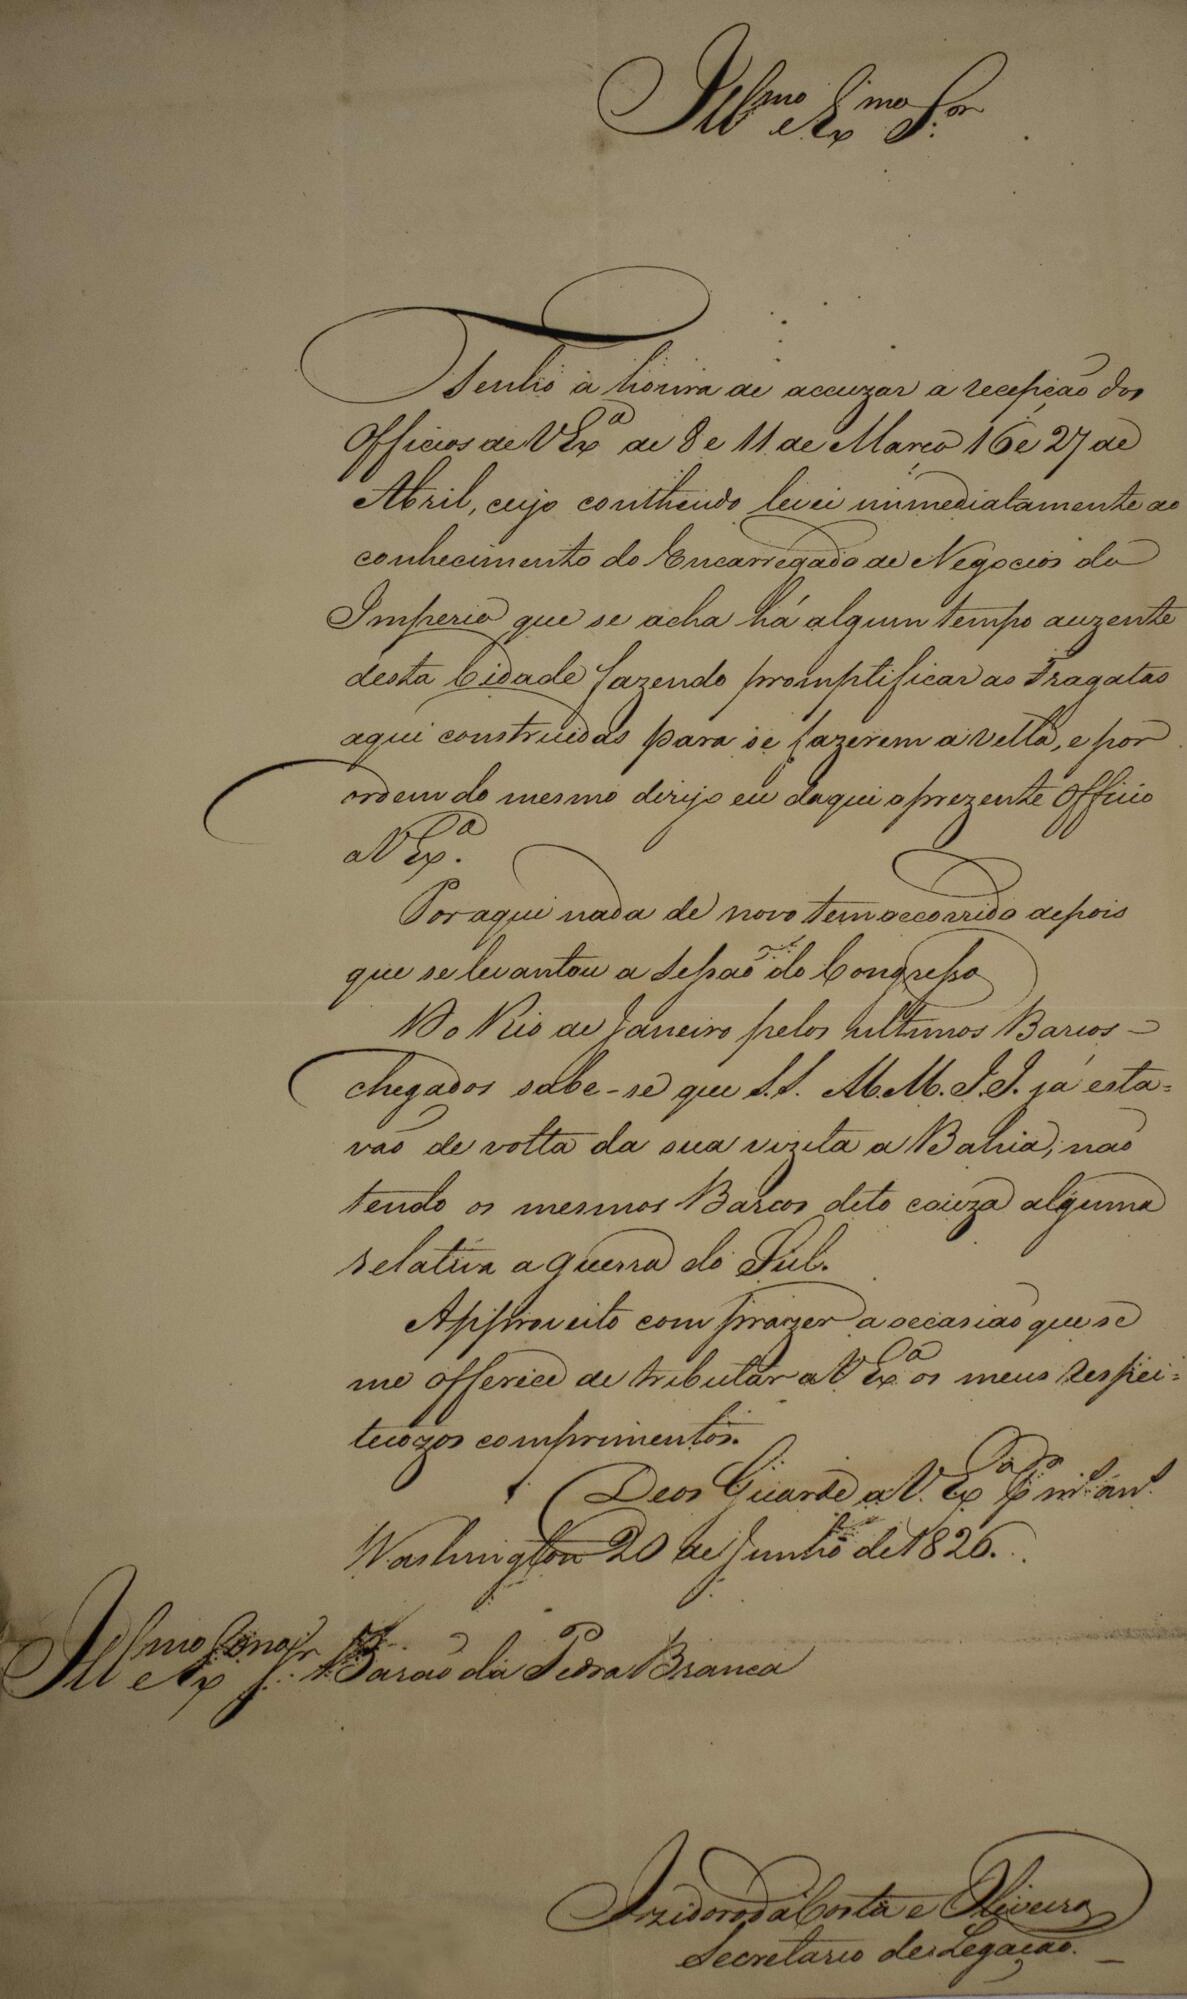 Ill.mo e Ex.mo S.or
Tenho a honra de accuzar a recepção dos
Officios de V Ex.a de 8 e 11 de Março 16 e 27 de
Abril, cujo contheudo levei immediatamente ao
conhecimento do Encarregado de Negocios do
Imperio que se acha há algum tempo auzente
desta Cidade fazendo promptificar as Fragatas
aqui construidas para se fazerem a vella, e por
ordem do mesmo dirijo eu daqui o prezente Officio
a V Ex.a
Por aqui nada de novo tem occorrido depois
que se levantou a Sessão do Congresso
Do Rio de Janeiro pelos ultimos Barcos
chegados sabe-se que S.S. M.M. I.I. já esta=
vão de volta da sua vizita a Bahia, não
tendo os mesmos Barcos dito couza alguma
relativa a guerra do Sul.
Approveito com prazer a occasião que se
me offerece de tributar a V Ex.a os meus respei=
tuozos comprimentos.
Deos Guarde a V. Ex.a P.r m.s an.s
Washington 20 de Junho de 1826.
Ill.mo e Ex.mo S.r Barão da Pedra Branca
Izidoro da Costa e Oliveira
Secretario de Legação.